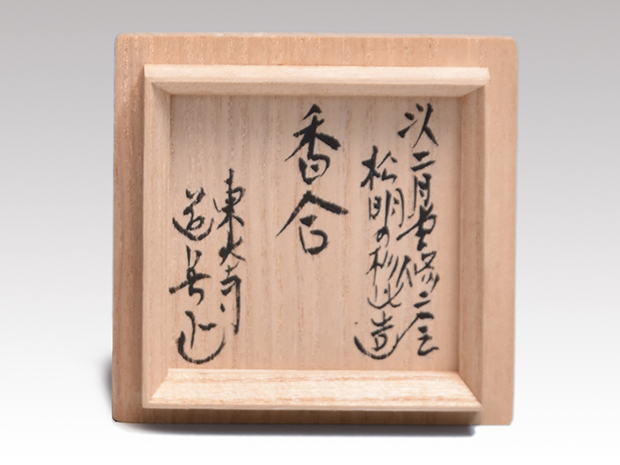 以二月堂修二会
松明の杉造
香合
東大寺
道善